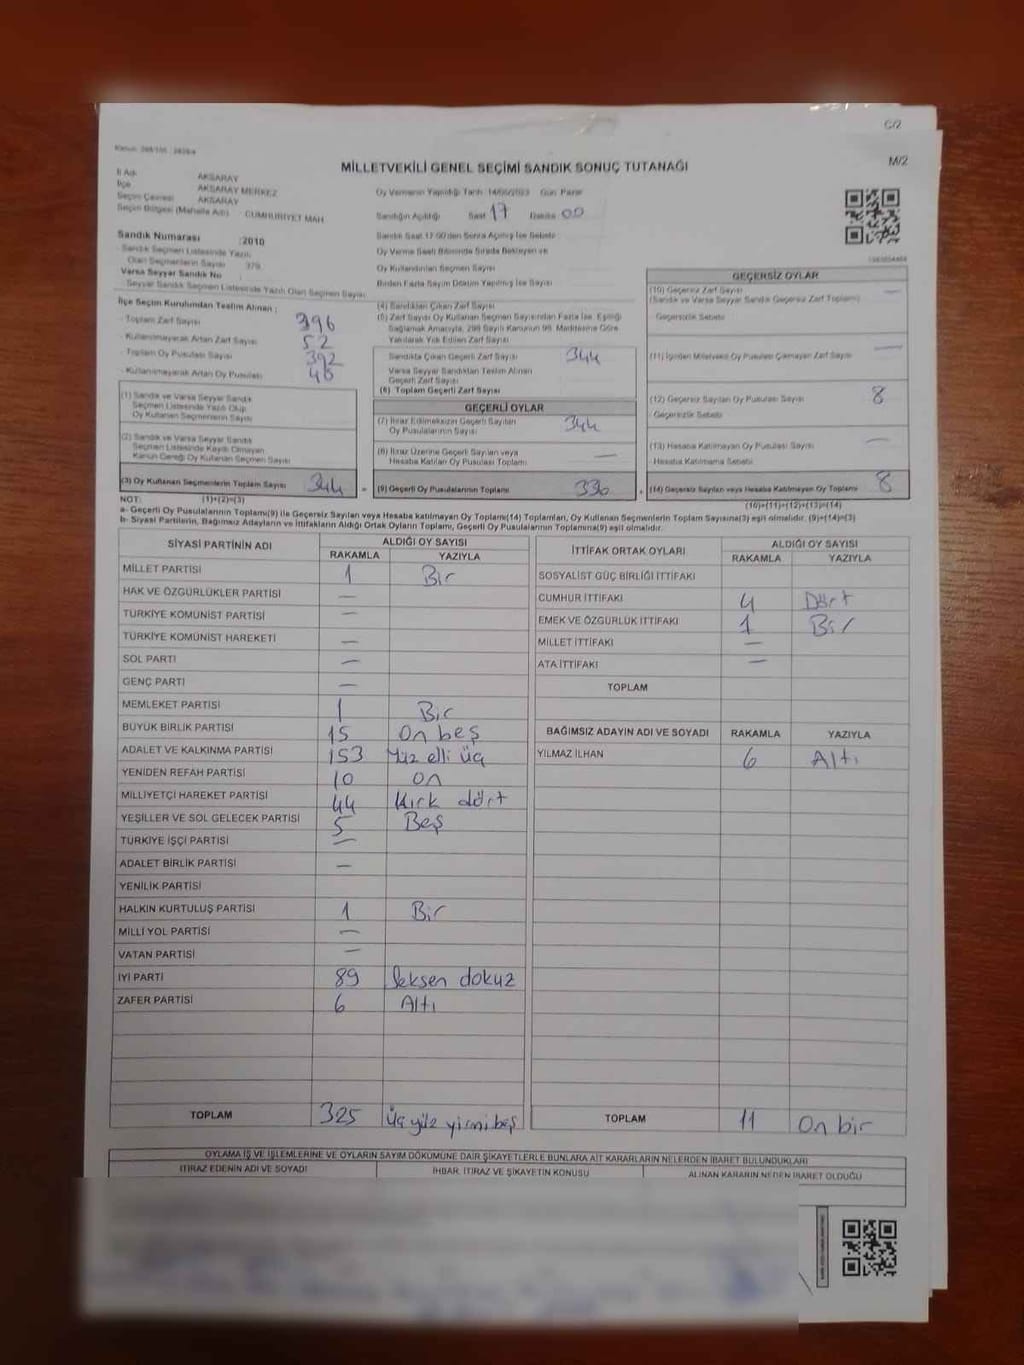 C/2
M/2
MİLLETVEKİLİ GENEL SEÇİMİ SANDIK SONUÇ TUTANAĞI
İl Adı AKSARAY
İlçe AKSARAY MERKEZ
Seçim Çevresi AKSARAY
Seçim Bölgesi (Mahalle Adı) : CUMHURİYET MAH
Oy Vermenin Yapıldığı Tarih: 14/05/2023 Gün: Pazar
Sandığın Açıldığı Saat 17 Dakika 00
Sandık Numarası :2010
Sandık Seçmen Listesinde Yazılı
Olan Seçmenlerin Sayısı 379
Varsa Seyyar Sandık No :
Seyyar Sandık Seçmen Listesinde Yazılı Olan Seçmen Sayısı
Sandık Saat 17:00'den Sonra Açılmış İse Sebebi
Oy Verme Saati Bitiminde Sırada Bekleyen ve
Oy Kullandırılan Seçmen Sayısı
Birden Fazla Sayım Döküm Yapılmış İse Sayısı
İlçe Seçim Kurulundan Teslim Alınan ;
- Toplam Zarf Sayısı 396
- Kullanılmayarak Artan Zarf Sayısı 52
- Toplam Oy Pusulası Sayısı 392
- Kullanılmayarak Artan Oy Pusulası 48
(1) Sandık ve Varsa Seyyar Sandık
Seçmen Listesinde Yazılı Olup
Oy Kullanan Seçmenlerin Sayısı
(2) Sandık ve Varsa Seyyar Sandık
Seçmen Listesinde Kayıtlı Olmayan
Kanun Gereği Oy Kullanan Seçmen Sayısı
(3) Oy Kullanan Seçmenlerin Toplam Sayısı 344
(4) Sandıktan Çıkan Zarf Sayısı
(5) Zarf Sayısı Oy Kullanan Seçmen Sayısından Fazla İse, Eşitliği
Sağlamak Amacıyla, 298 Sayılı Kanunun 98. Maddesine Göre
Yakılarak Yok Edilen Zarf Sayısı
Sandıkta Çıkan Geçerli Zarf Sayısı 344
Varsa Seyyar Sandıktan Teslim Alınan
Geçerli Zarf Sayısı
(6) Toplam Geçerli Zarf Sayısı
GEÇERLİ OYLAR
(7) İtiraz Edilmeksizin Geçerli Sayılan
Oy Pusulalarının Sayısı 344
(8) İtiraz Üzerine Geçerli Sayılan veya
Hesaba Katılan Oy Pusulası Toplamı —
(9) Geçerli Oy Pusulalarının Toplamı 336
GEÇERSİZ OYLAR
(10) Geçersiz Zarf Sayısı —
(Sandık ve Varsa Seyyar Sandık Geçersiz Zarf Toplamı)
Geçersizlik Sebebi
(11) İçinden Milletvekili Oy Pusulası Çıkmayan Zarf Sayısı —
(12) Geçersiz Sayılan Oy Pusulası Sayısı 8
Geçersizlik Sebebi
(13) Hesaba Katılmayan Oy Pusulası Sayısı —
Hesaba Katılmama Sebebi
(14) Geçersiz Sayılan veya Hesaba Katılmayan Oy Toplamı 8
NOT: (1)+(2)=(3) (10)+(11)+(12)+(13)=(14)
a- Geçerli Oy Pusulalarının Toplamı(9) ile Geçersiz Sayılan veya Hesaba Katılmayan Oy Toplamı(14) Toplamları, Oy Kullanan Seçmenlerin Toplam Sayısına(3) eşit olmalıdır. (9)+(14)=(3)
b- Siyasi Partilerin, Bağımsız Adayların ve İttifakların Aldığı Ortak Oyların Toplamı, Geçerli Oy Pusulalarının Toplamına(9) eşit olmalıdır.
SİYASİ PARTİNİN ADI ALDIĞI OY SAYISI
RAKAMLA YAZIYLA
MİLLET PARTİSİ 1 Bir
HAK VE ÖZGÜRLÜKLER PARTİSİ —
TÜRKİYE KOMÜNİST PARTİSİ —
TÜRKİYE KOMÜNİST HAREKETİ —
SOL PARTİ —
GENÇ PARTİ —
MEMLEKET PARTİSİ 1 Bir
BÜYÜK BİRLİK PARTİSİ 15 On beş
ADALET VE KALKINMA PARTİSİ 153 Yüz elli üç
YENİDEN REFAH PARTİSİ 10 On
MİLLİYETÇİ HAREKET PARTİSİ 44 Kırk dört
YEŞİLLER VE SOL GELECEK PARTİSİ 5 Beş
TÜRKİYE İŞÇİ PARTİSİ —
ADALET BİRLİK PARTİSİ —
YENİLİK PARTİSİ
HALKIN KURTULUŞ PARTİSİ 1 Bir
MİLLİ YOL PARTİSİ —
VATAN PARTİSİ —
İYİ PARTİ 89 Seksen dokuz
ZAFER PARTİSİ 6 Altı
TOPLAM 325 Üç yüz yirmi beş
İTTİFAK ORTAK OYLARI ALDIĞI OY SAYISI
RAKAMLA YAZIYLA
SOSYALİST GÜÇ BİRLİĞİ İTTİFAKI
CUMHUR İTTİFAKI 4 Dört
EMEK VE ÖZGÜRLÜK İTTİFAKI 1 Bir
MİLLET İTTİFAKI —
ATA İTTİFAKI —
TOPLAM
BAĞIMSIZ ADAYIN ADI VE SOYADI RAKAMLA YAZIYLA
YILMAZ İLHAN 6 Altı
TOPLAM 11 On bir
OYLAMA İŞ VE İŞLEMLERİNE VE OYLARIN SAYIM DÖKÜMÜNE DAİR ŞİKAYETLERLE BUNLARA AİT KARARLARIN NELERDEN İBARET BULUNDUKLARI
İTİRAZ EDENİN ADI VE SOYADI İHBAR, İTİRAZ VE ŞİKAYETİN KONUSU ALINAN KARARIN NEDEN İBARET OLDUĞU